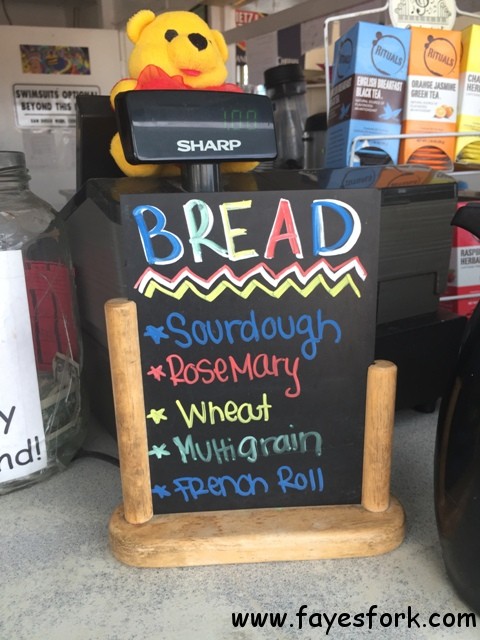 SWIMSUITS OPTIONAL
BEYOND THIS
RITUALS
ENGLISH BREAKFAST
BLACK TEA
RITUALS
ORANGE JASMINE
GREEN TEA
SHARP
BREAD
Sourdough
RoseMary
Wheat
Multigrain
French Roll
RASPB
HERBA
y
nd!
www.fayesfork.com